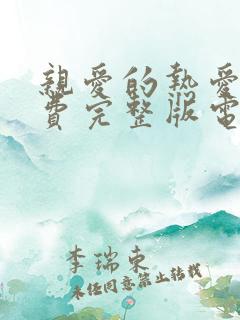 親愛的熱愛
費完整版電
李瑞東
未经同意禁止转载